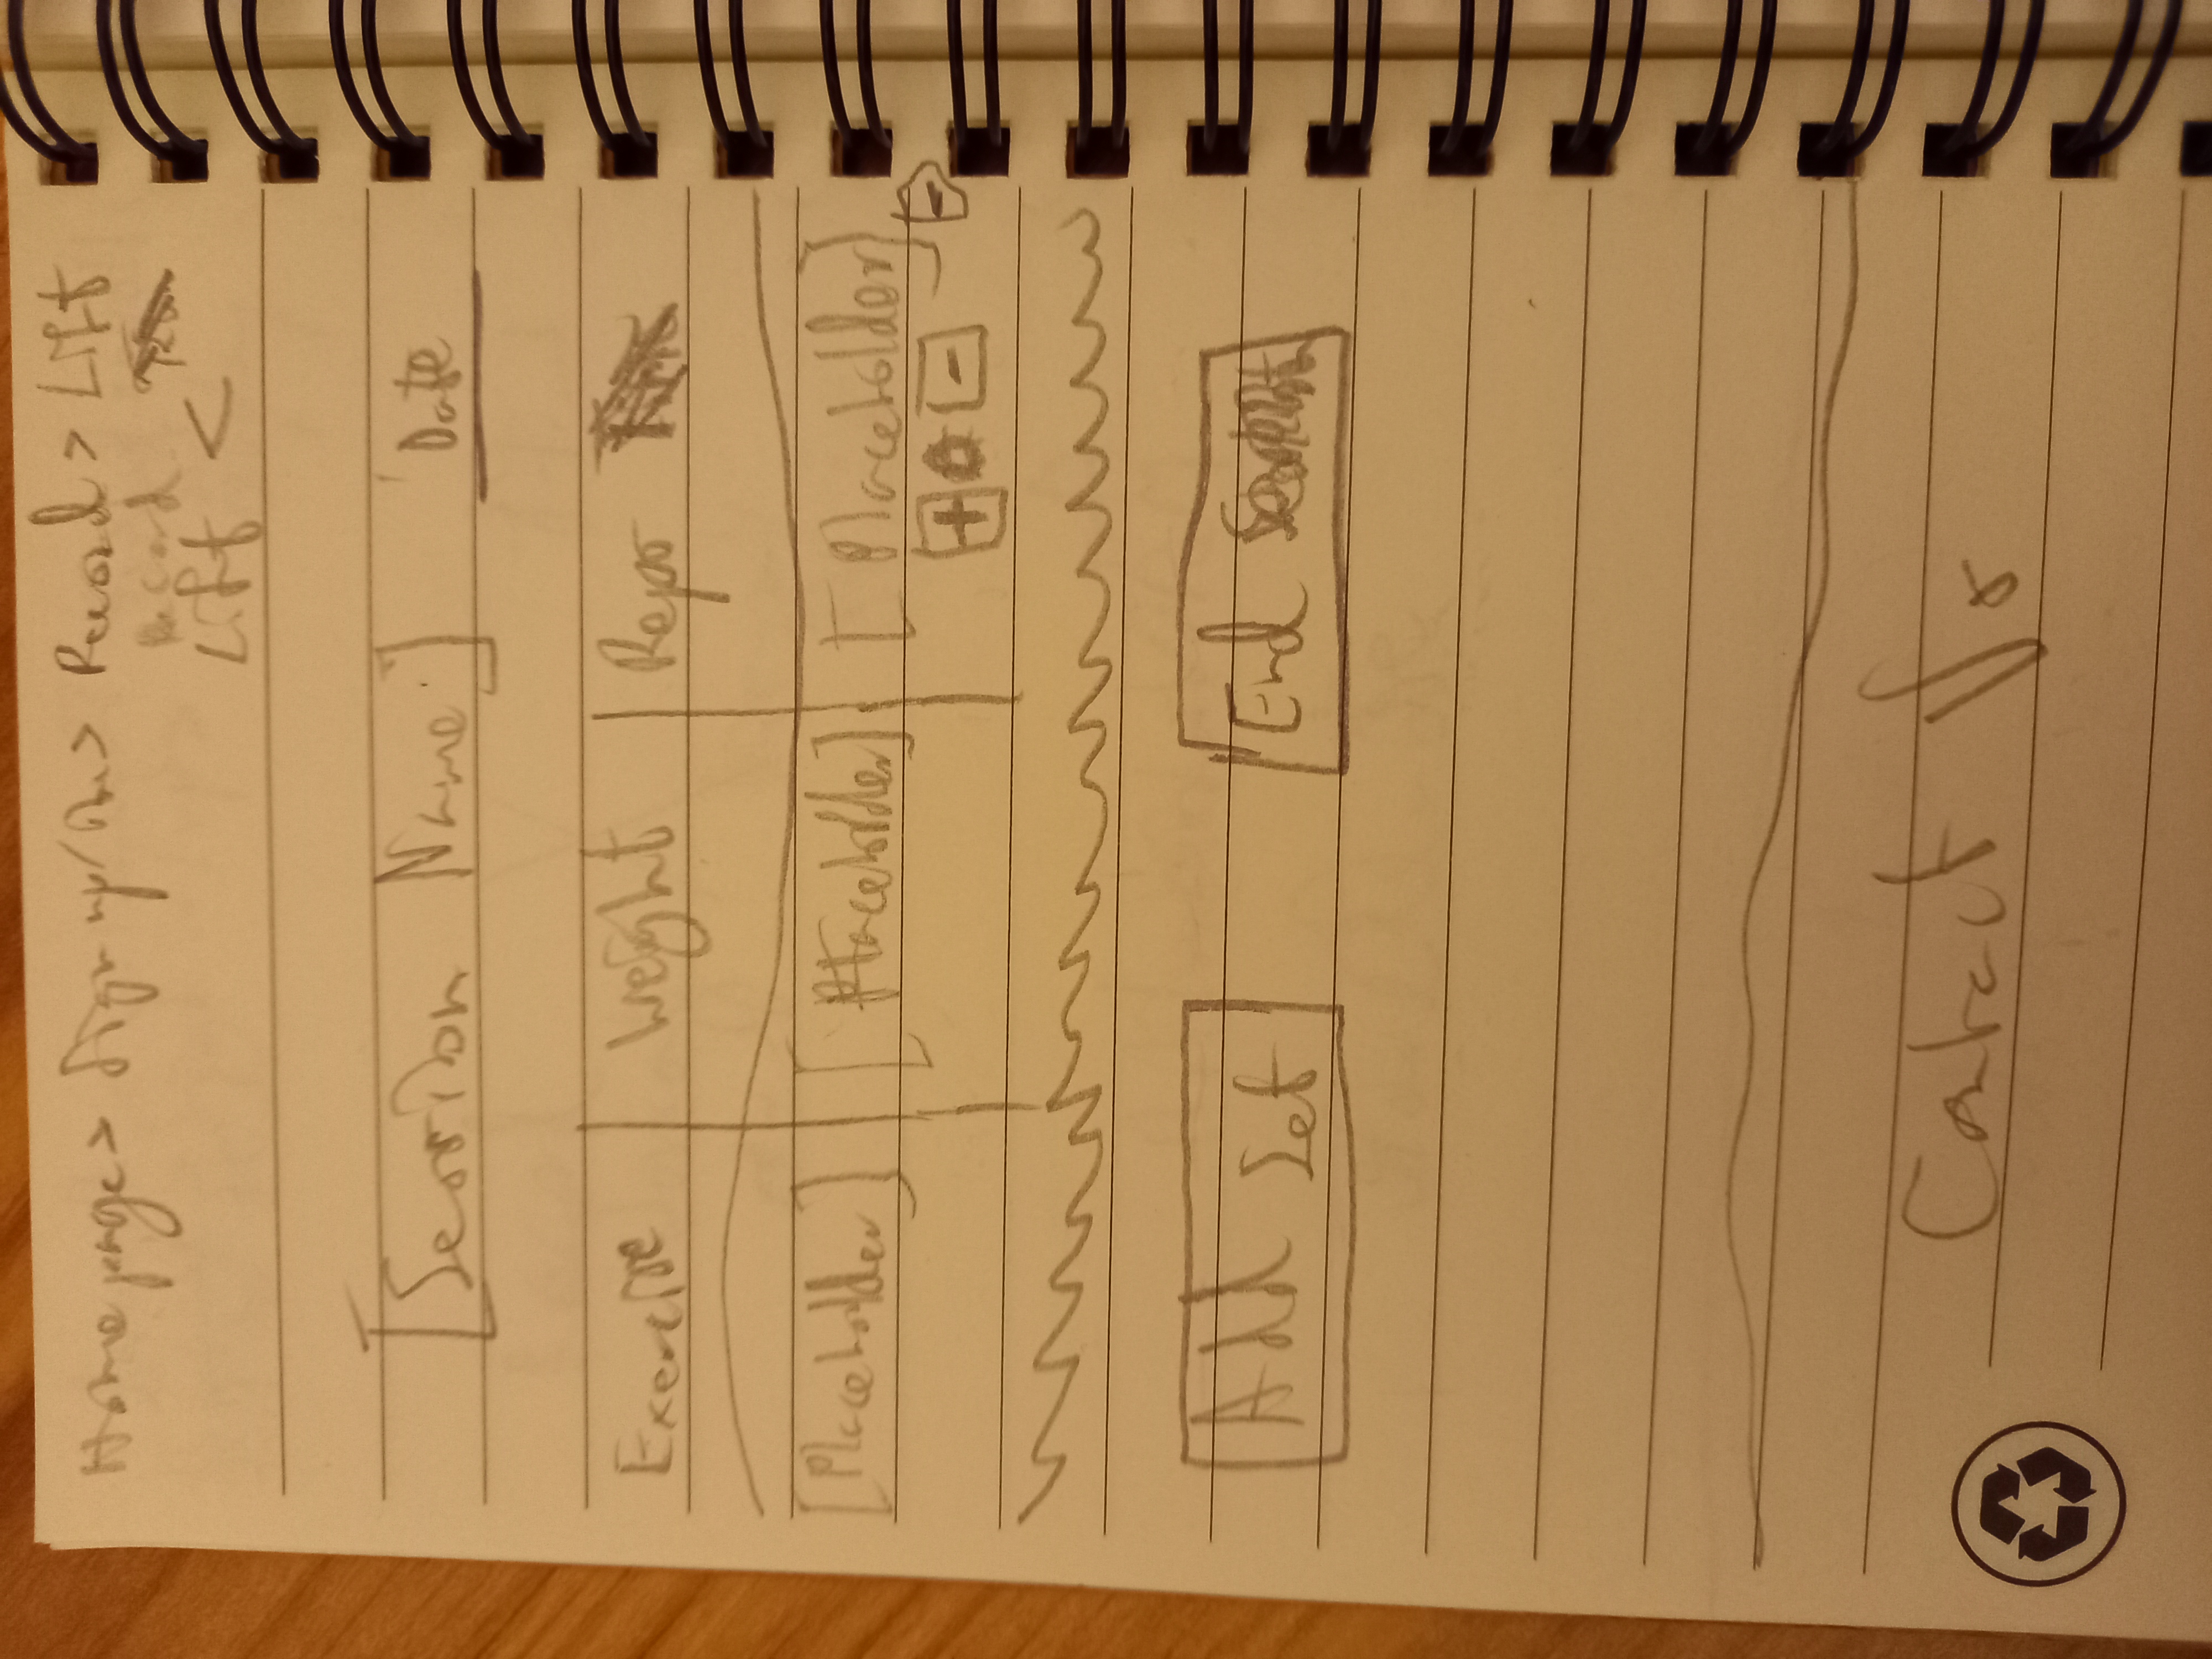 Homepage > Sign up/In > Record > Lift
Record
Lift <
[Session Name] Date
Exercise Weight Reps
[Placeholder] [Placeholder] [Placeholder] -
+ -
Add Set End
Contact Us